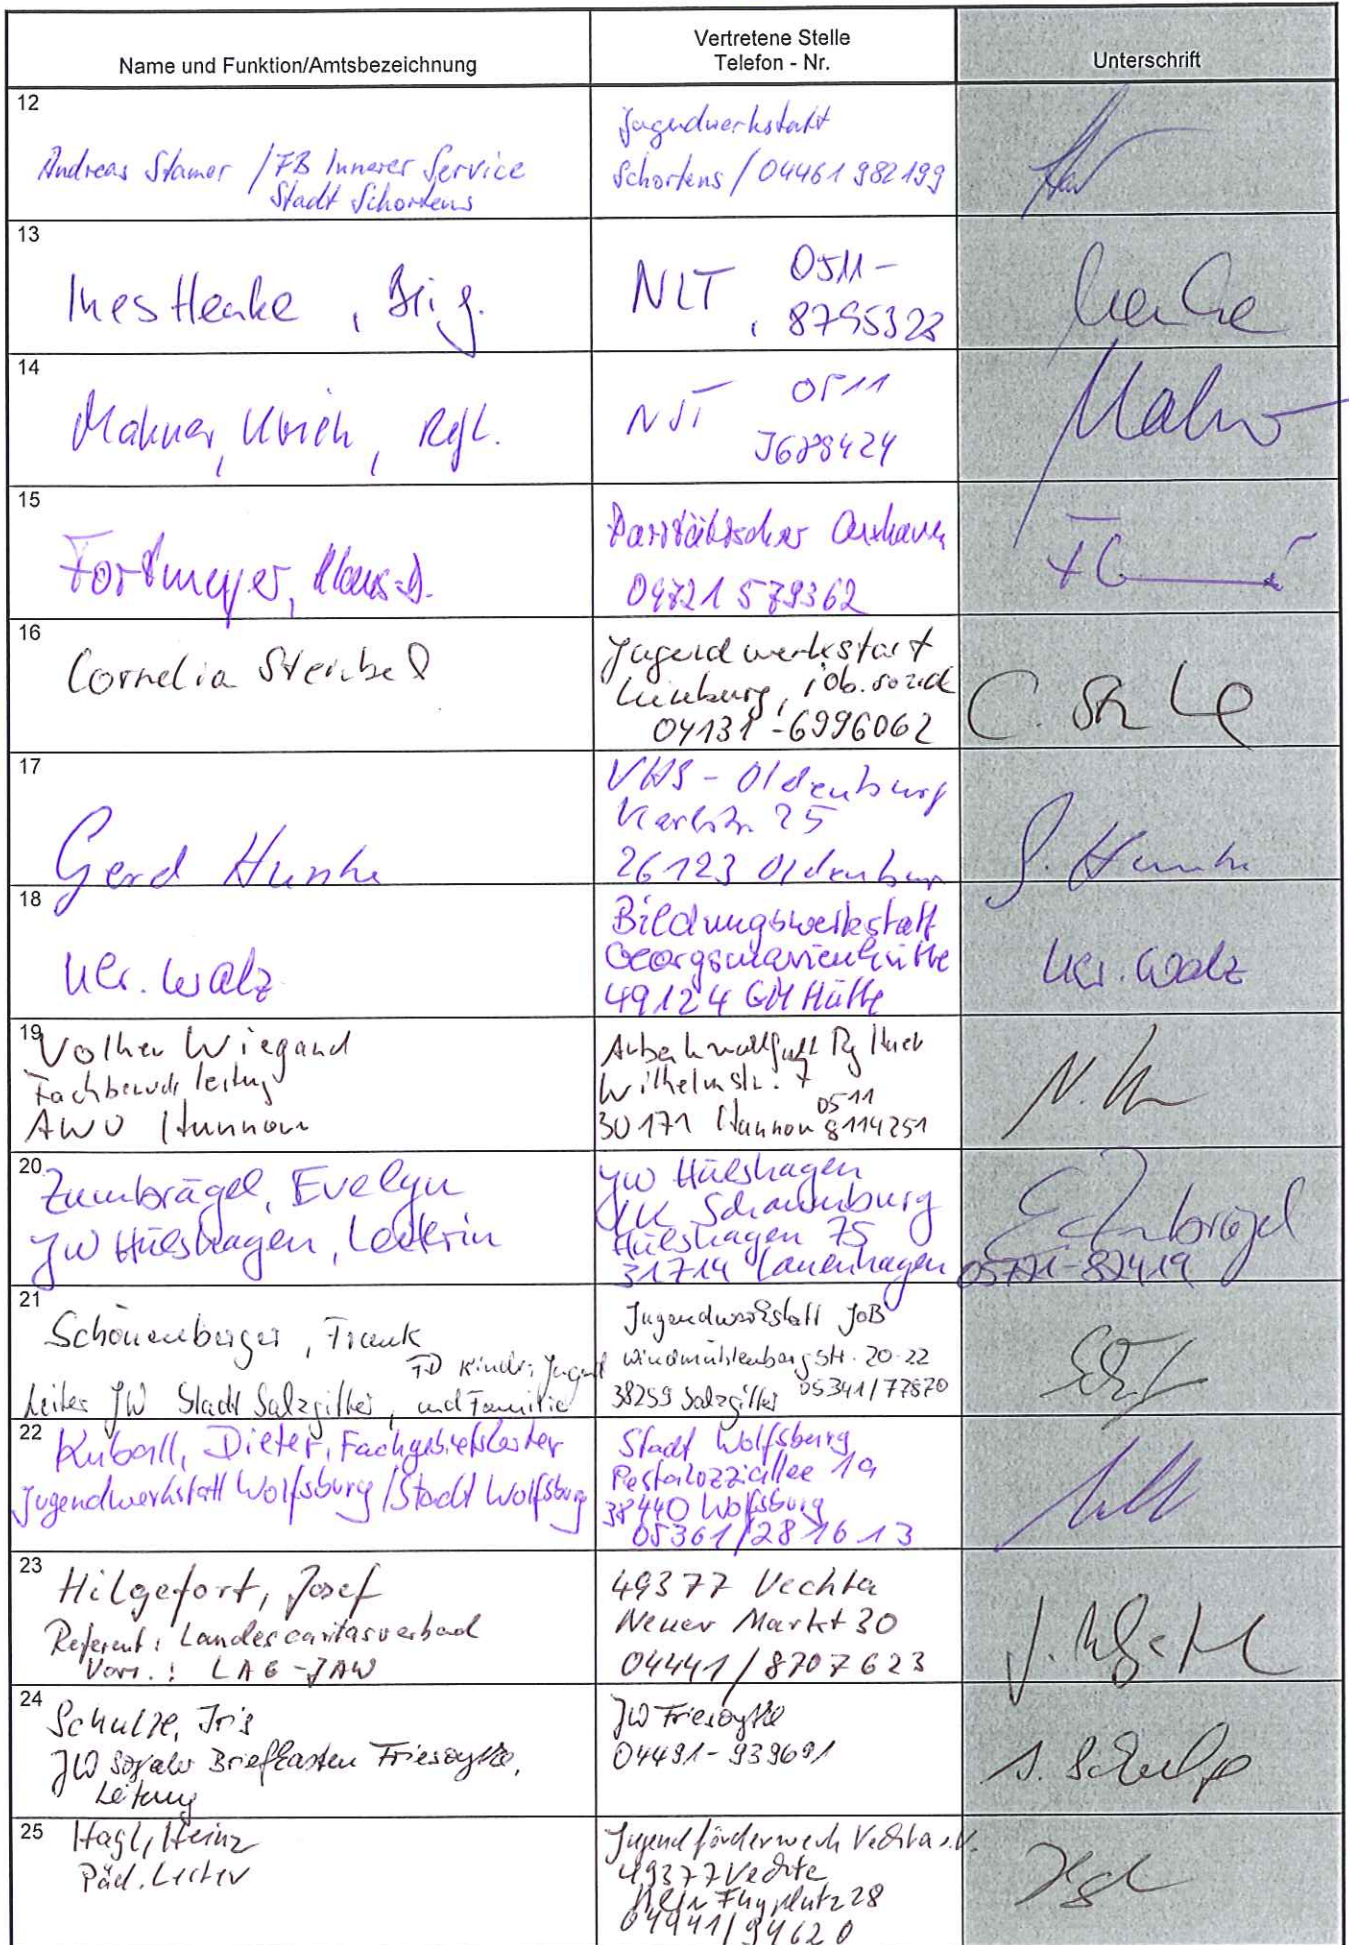 Name und Funktion/Amtsbezeichnung
Vertretene Stelle
Telefon - Nr.
Unterschrift
12
Andreas Stamer / FB Innerer Service
Stadt Schortens
Jugendwerkstatt
Schortens / 04461 982199
13
Ines Henke,
NLT, 0511-
8795323
14
Mahner, Ulrich, Refl.
NST 0511
Mahner
15
Fortmeyer, Klaus-D.
Paritätischer Cuxhaven
04721 579362
16
Cornelia Stenbel
Jugendwerkstatt
Lüneburg, job.sozial
04131-6996062
17
Gerd Hunke
VHS - Oldenburg
Karlstr. 25
26123 Oldenburg
G. Hunke
18
Ulr. Walz
Bildungswerkstatt
Georgsmarienhütte
49124 GM Hütte
Ulr. Walz
19
Volker Wiegand
AWO Hannover
Wilhelmstr. 7
0511
30171 Hannover 8114251
20
Zumbrägel, Evelyn
JW Hülshagen, Leiterin
JW Hülshagen
LK Schaumburg
Hülshagen 75
31714 Lauenhagen
E. Zumbrägel
05721-82419
21
Schönenberger, Frank
FD Kinder, Jugend
Leiter JW Stadt Salzgitter, und Familie
Jugendwerkstatt JoB
Windmühlenbergstr. 20-22
38259 Salzgitter 05341/77870
22
Kuball, Dieter, Fachgebietsleiter
Jugendwerkstatt Wolfsburg / Stadt Wolfsburg
Stadt Wolfsburg
Pestalozziallee 1a
38440 Wolfsburg
05361/281613
23
Hilgefort, Josef
Referent: Landescaritasverband
Vors.: LAG-JAW
49377 Vechta
Neuer Markt 30
04441/8707623
24
Schulze, Iris
JW Sozialer Briefkasten Friesoythe,
Leitung
JW Friesoythe
04491-939691
25
Hagl, Heinz
Päd. Leiter
Jugendförderwerk Vechta e.V.
49377 Vechta
Flugplatz 28
04441/94620